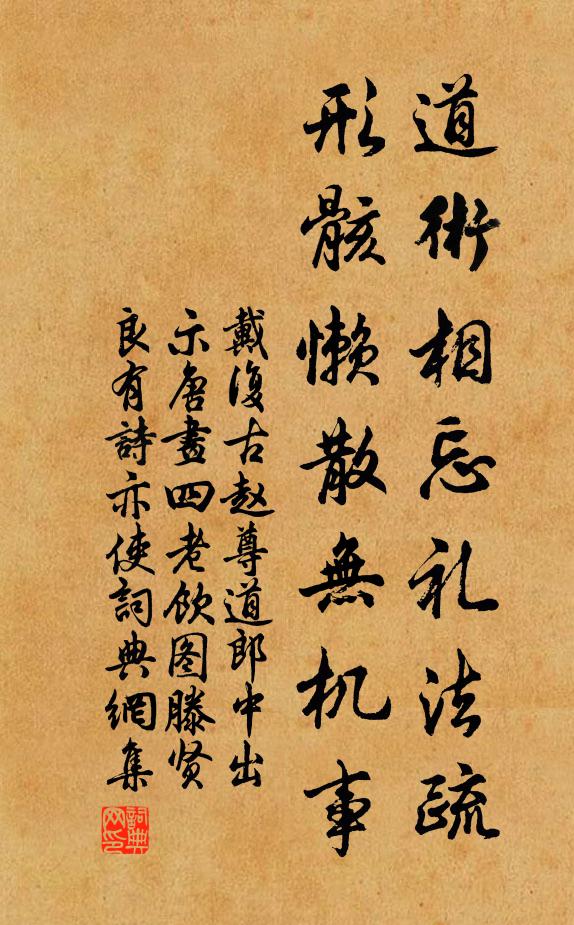 道術相忘礼法疏
形骸懒散無机事
戴復古赵尊道郎中出
示唐畫四老饮图滕贤
良有詩亦使詞典網集
詞典网印